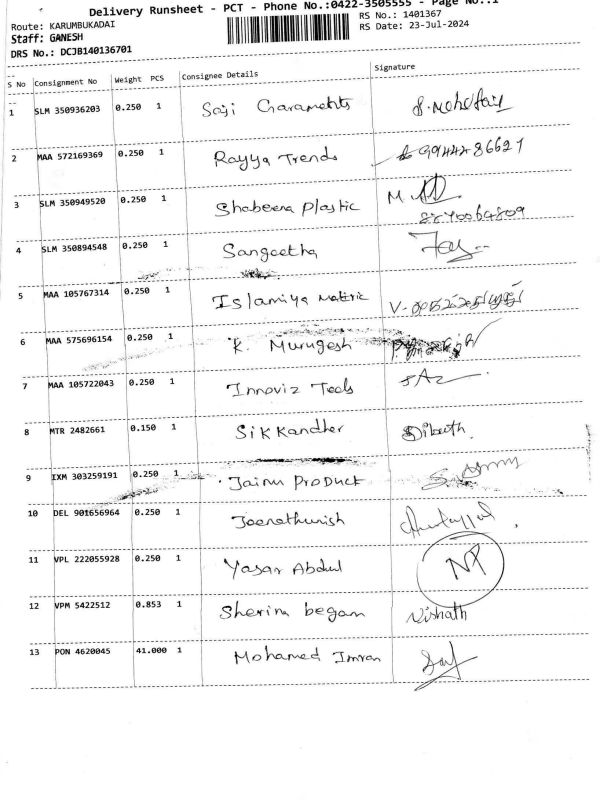 Delivery Runsheet - PCT - Phone No.:0422-3505555 - Page No.:1
Route: KARUMBUKADAI
RS No.: 1401367
Staff: GANESH
RS Date: 23-Jul-2024
DRS No.: DCJB140136701
S No Consignment No Weight PCS Consignee Details Signature
1 SLM 350936203 0.250 1 Saji Garamehts
2 MAA 572169369 0.250 1 Rayya Trends 9944486621
3 SLM 350949520 0.250 1 Shabeena plastic M
4 SLM 350894548 0.250 1 Sangeetha
5 MAA 105767314 0.250 1 Islamiya Matric
6 MAA 575696154 0.250 1 K. Murugesh
7 MAA 105722043 0.250 1 Innoviz Tools
8 MTR 2482661 0.150 1 Sikkandher
9 IXM 303259191 0.250 1 Jainu Product
10 DEL 901656964 0.250 1 Jeenathunish
11 VPL 222055928 0.250 1 Yasar Abdul NP
12 VPM 5422512 0.853 1 Sherina began Nishath
13 PON 4620045 41.000 1 Mohamed Imran